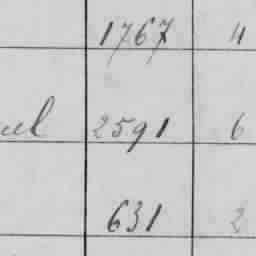 1767 11
2591 6
631 2